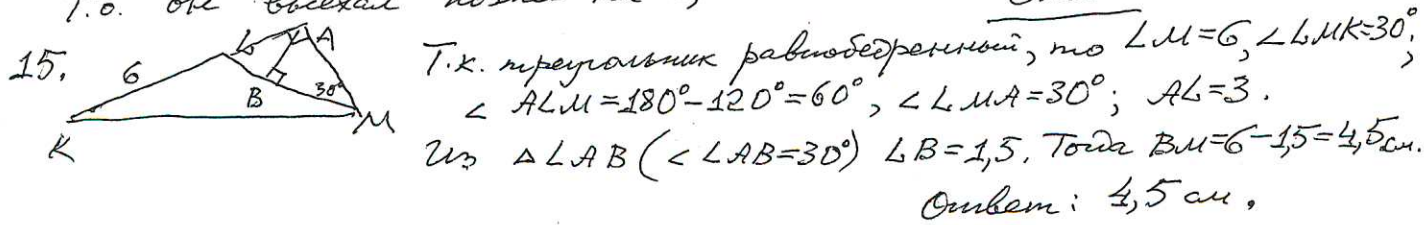 Т.о. он выехал
15.
6
L
A
B
30°
K
M
Т.к. треугольник равнобедренный, то LM=6, ∠LMK=30°;
∠ALM=180°-120°=60°, ∠LMA=30°; AL=3.
Из △LAB (∠LAB=30°) LB=1,5. Тогда BM=6-1,5=4,5 см.
Ответ: 4,5 см.